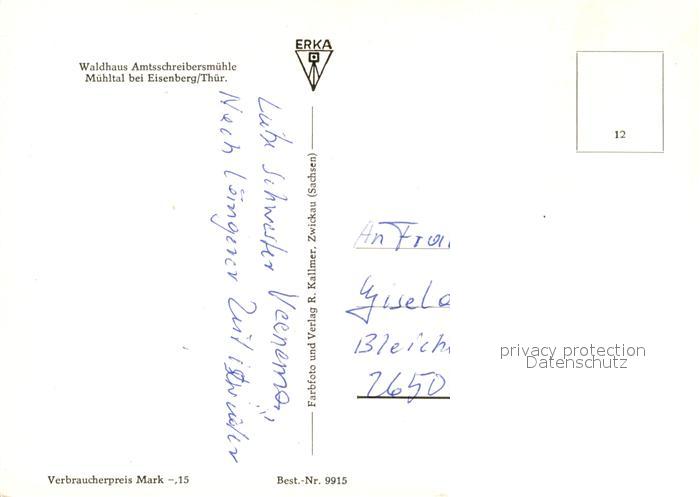 Waldhaus Amtsschreibersmühle
Mühltal bei Eisenberg/Thür.
ERKA
12
Farbfoto und Verlag R. Kallmer, Zwickau (Sachsen)
Schwester
Nach längerer Zeit ist wieder
An Frau
Gisela
Bleich
2650
privacy protection
Datenschutz
Verbraucherpreis Mark –,15
Best.-Nr. 9915